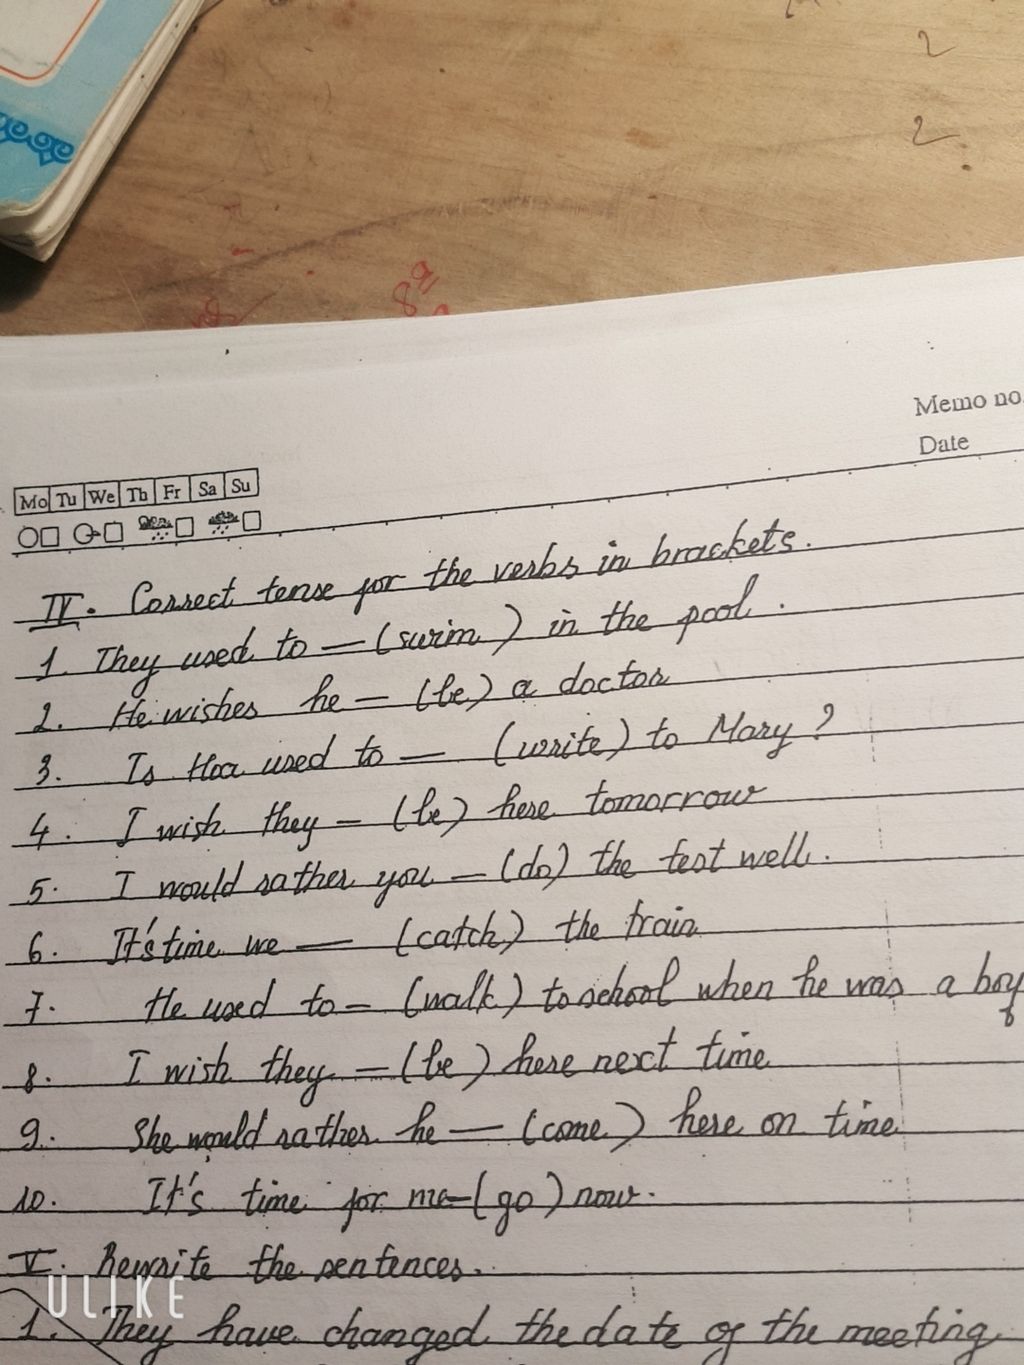 2
2
8a
Memo no.
Date
Mo Tu We Th Fr Sa Su
IV. Correct tense for the verbs in brackets.
1. They used to — (swim) in the pool.
2. He wishes he — (be) a doctor
3. Is Hoa used to — (write) to Mary?
4. I wish they — (be) here tomorrow
5. I would rather you — (do) the test well.
6. It's time we — (catch) the train
7. He used to — (walk) to school when he was a boy
8. I wish they — (be) here next time
9. She would rather he — (come) here on time
10. It's time for me — (go) now.
V. Rewrite the sentences.
1. They have changed the date of the meeting
ULIKE